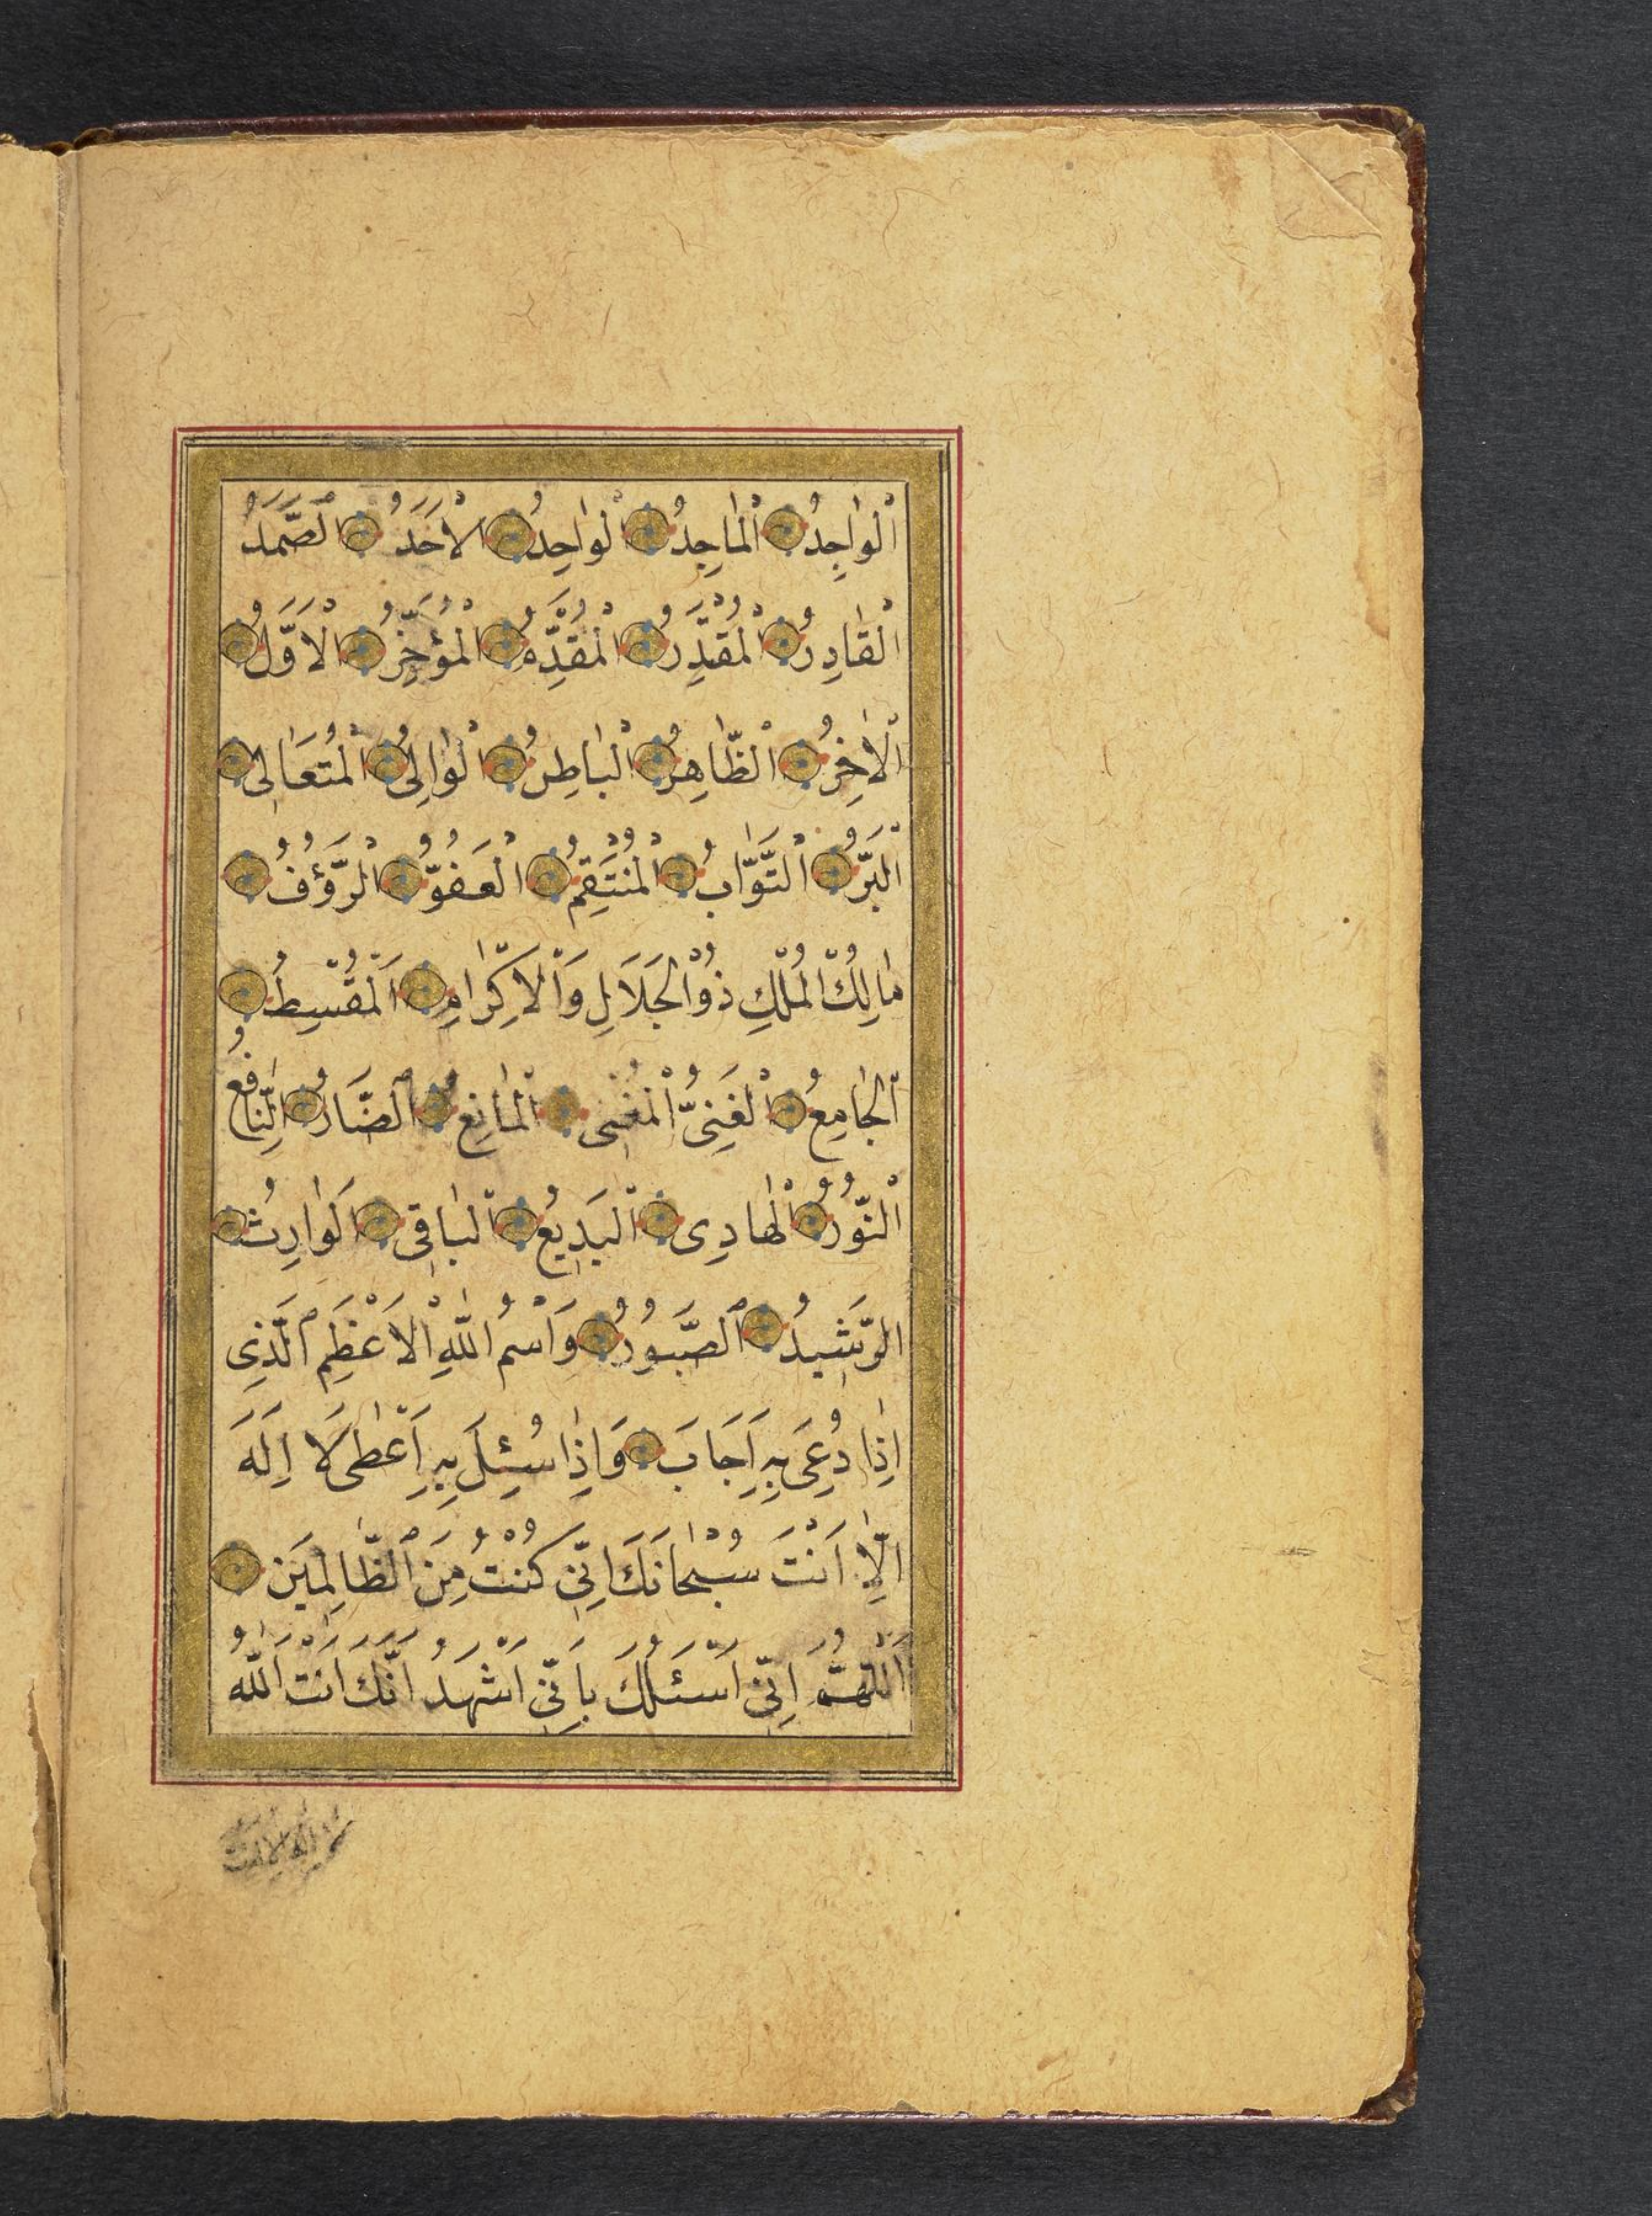 اَلْوَاجِدُ الْمَاجِدُ الْوَاحِدُ الْاَحَدُ الصَّمَدُ
الْقَادِرُ الْمُقْتَدِرُ الْمُقَدِّمُ الْمُؤَخِّرُ الْاَوَّلُ
الْاٰخِرُ الظَّاهِرُ الْبَاطِنُ الْوَالِىُ الْمُتَعَالِى
اَلْبَرُّ التَّوَّابُ الْمُنْتَقِمُ الْعَفُوُّ الرَّؤُفُ
مَالِكُ الْمُلْكِ ذُو الْجَلَالِ وَالْاِكْرَامِ اَلْمُقْسِطُ
اَلْجَامِعُ الْغَنِىُّ الْمُغْنِى الْمَانِعُ الضَّارُّ النَّافِعُ
اَلنُّورُ الْهَادِى الْبَدِيعُ الْبَاقِى الْوَارِثُ
الرَّشِيدُ الصَّبُورُ وَاسْمُ اللّٰهِ الْاَعْظَمِ الَّذِى
اِذَا دُعِىَ بِهِ اَجَابَ وَاِذَا سُئِلَ بِهِ اَعْطٰى لَا اِلٰهَ
اِلَّا اَنْتَ سُبْحَانَكَ اِنِّى كُنْتُ مِنَ الظَّالِمِينَ
اَللّٰهُمَّ اِنِّى اَسْئَلُكَ بِاَنِّى اَشْهَدُ اَنَّكَ اَنْتَ اللّٰهُ